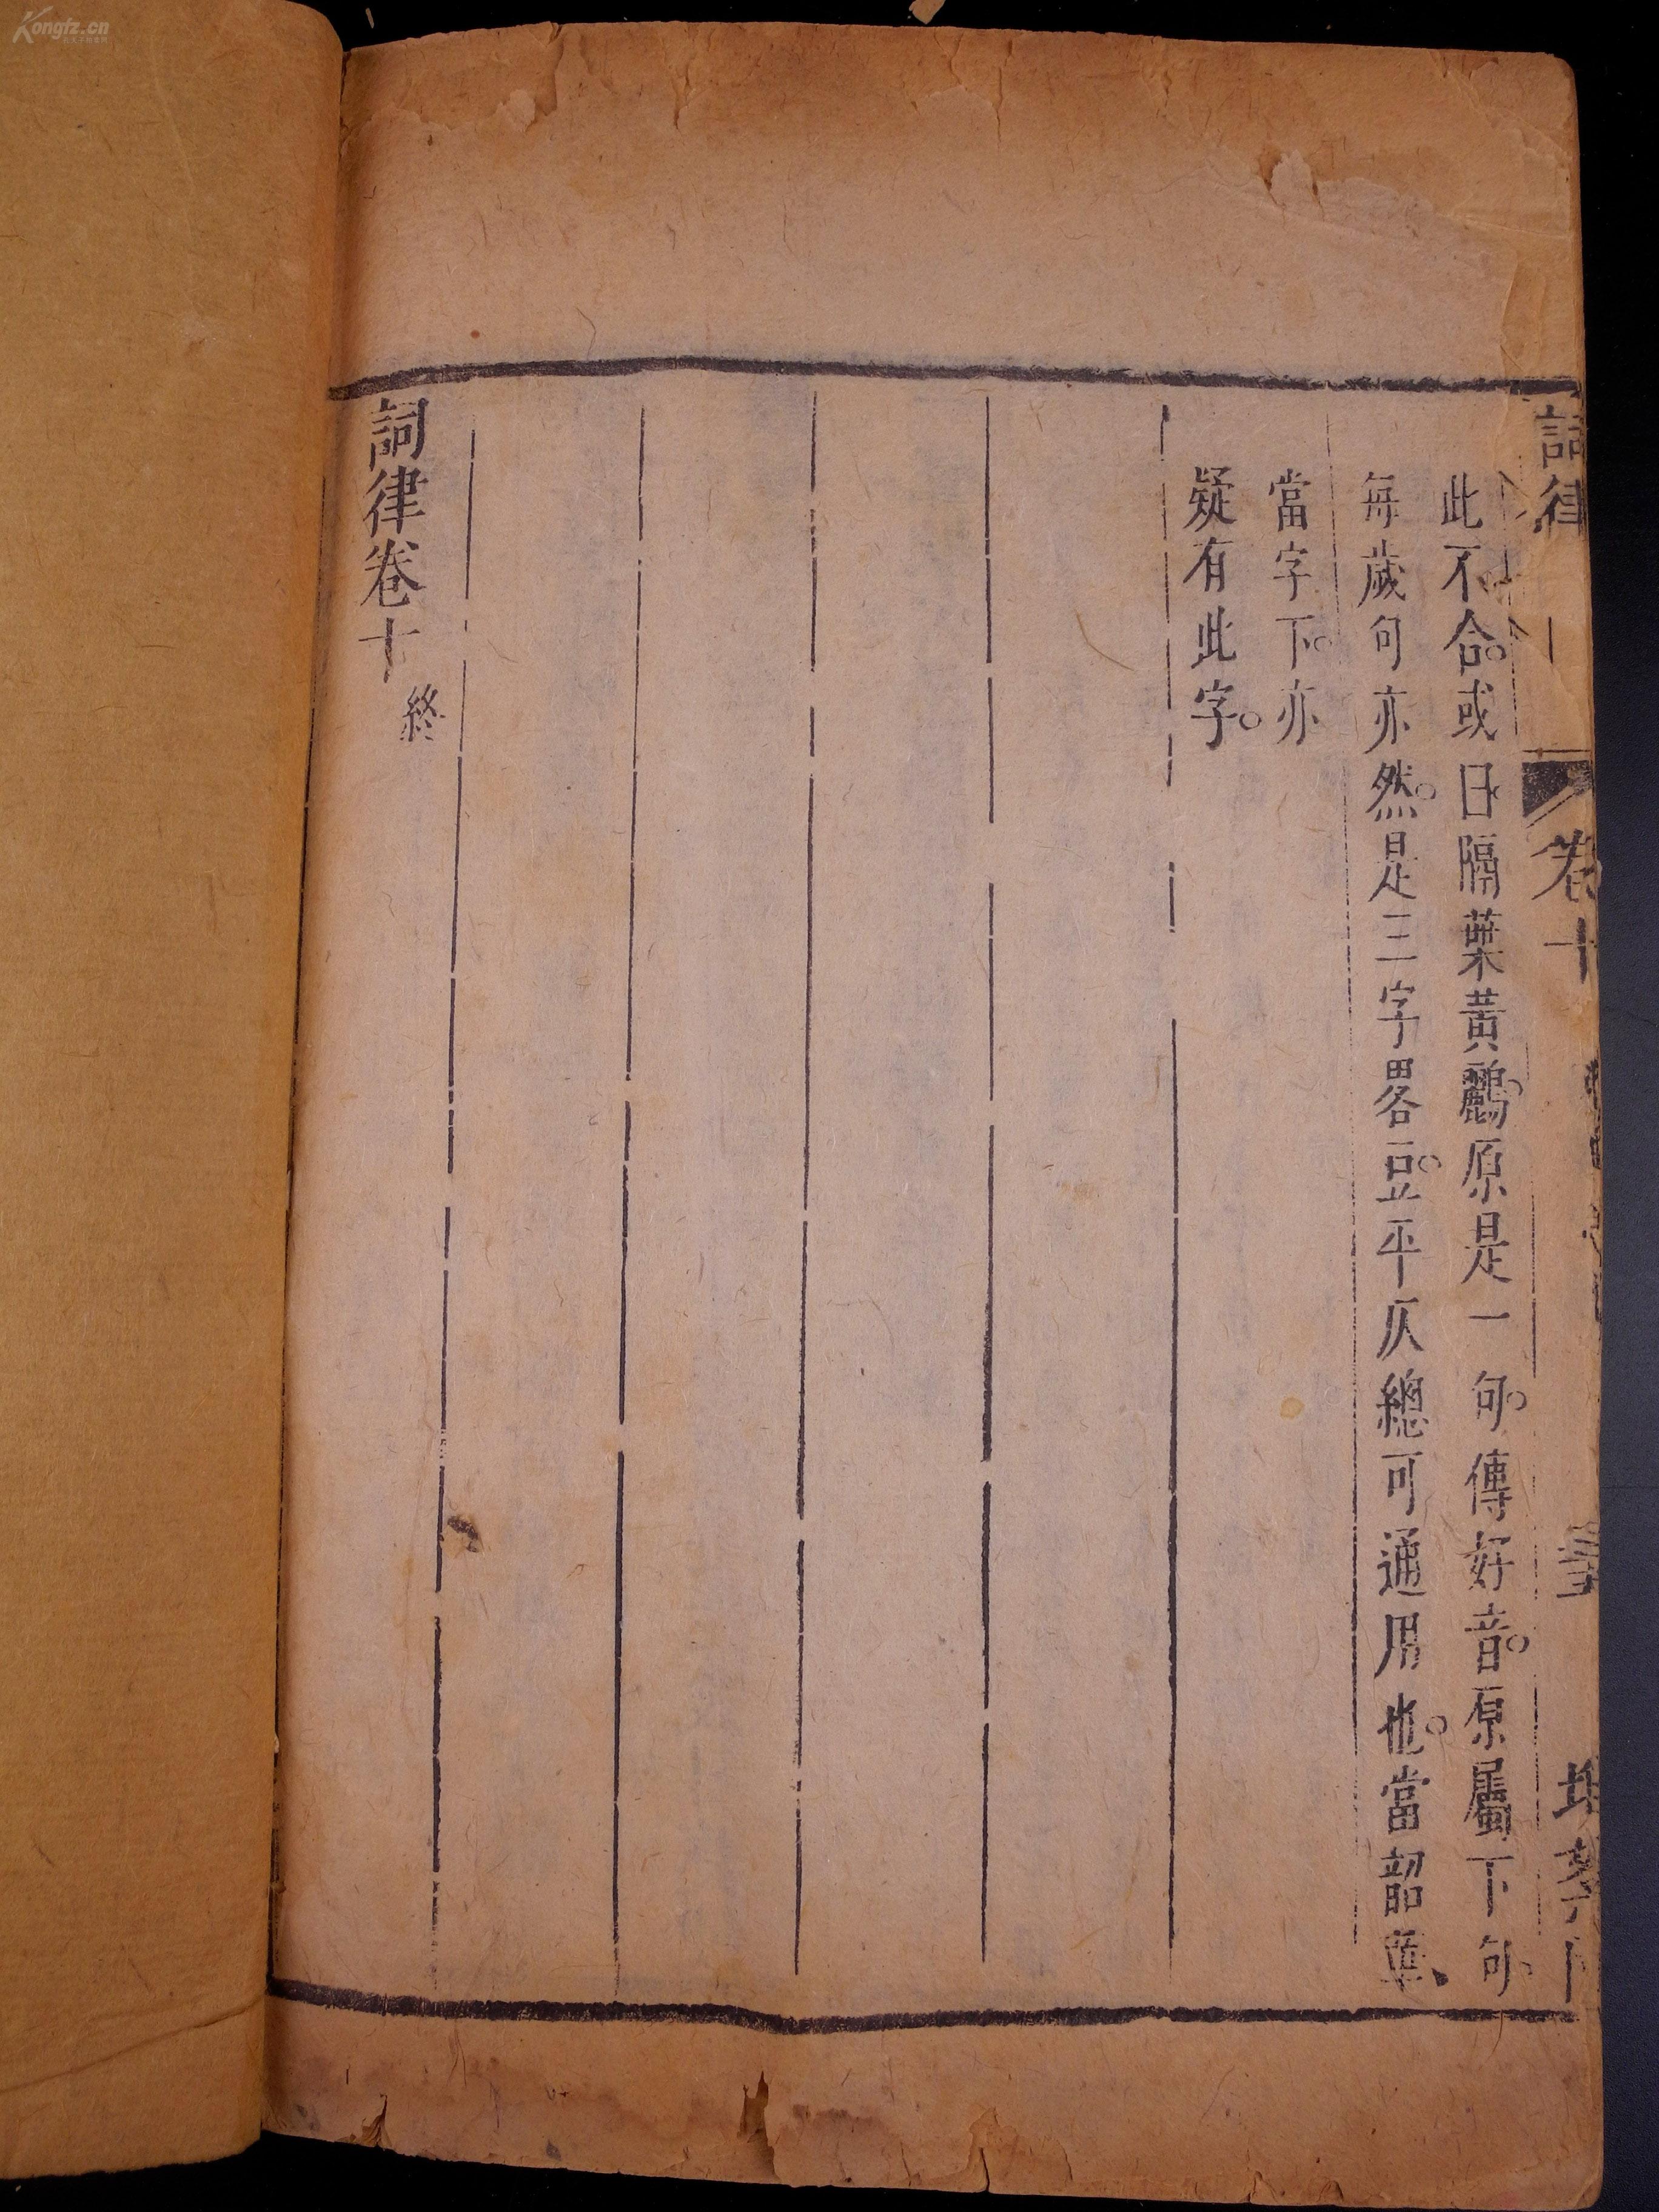 Kongfz.cn
詞律
卷十
此不合。或曰隔葉黃鸝。原是一句。傳好音。原屬下句
每歲句亦然。是三字畧豆。平仄總可通用也。當韶華
當字下。亦
疑有此字。
詞律卷十終